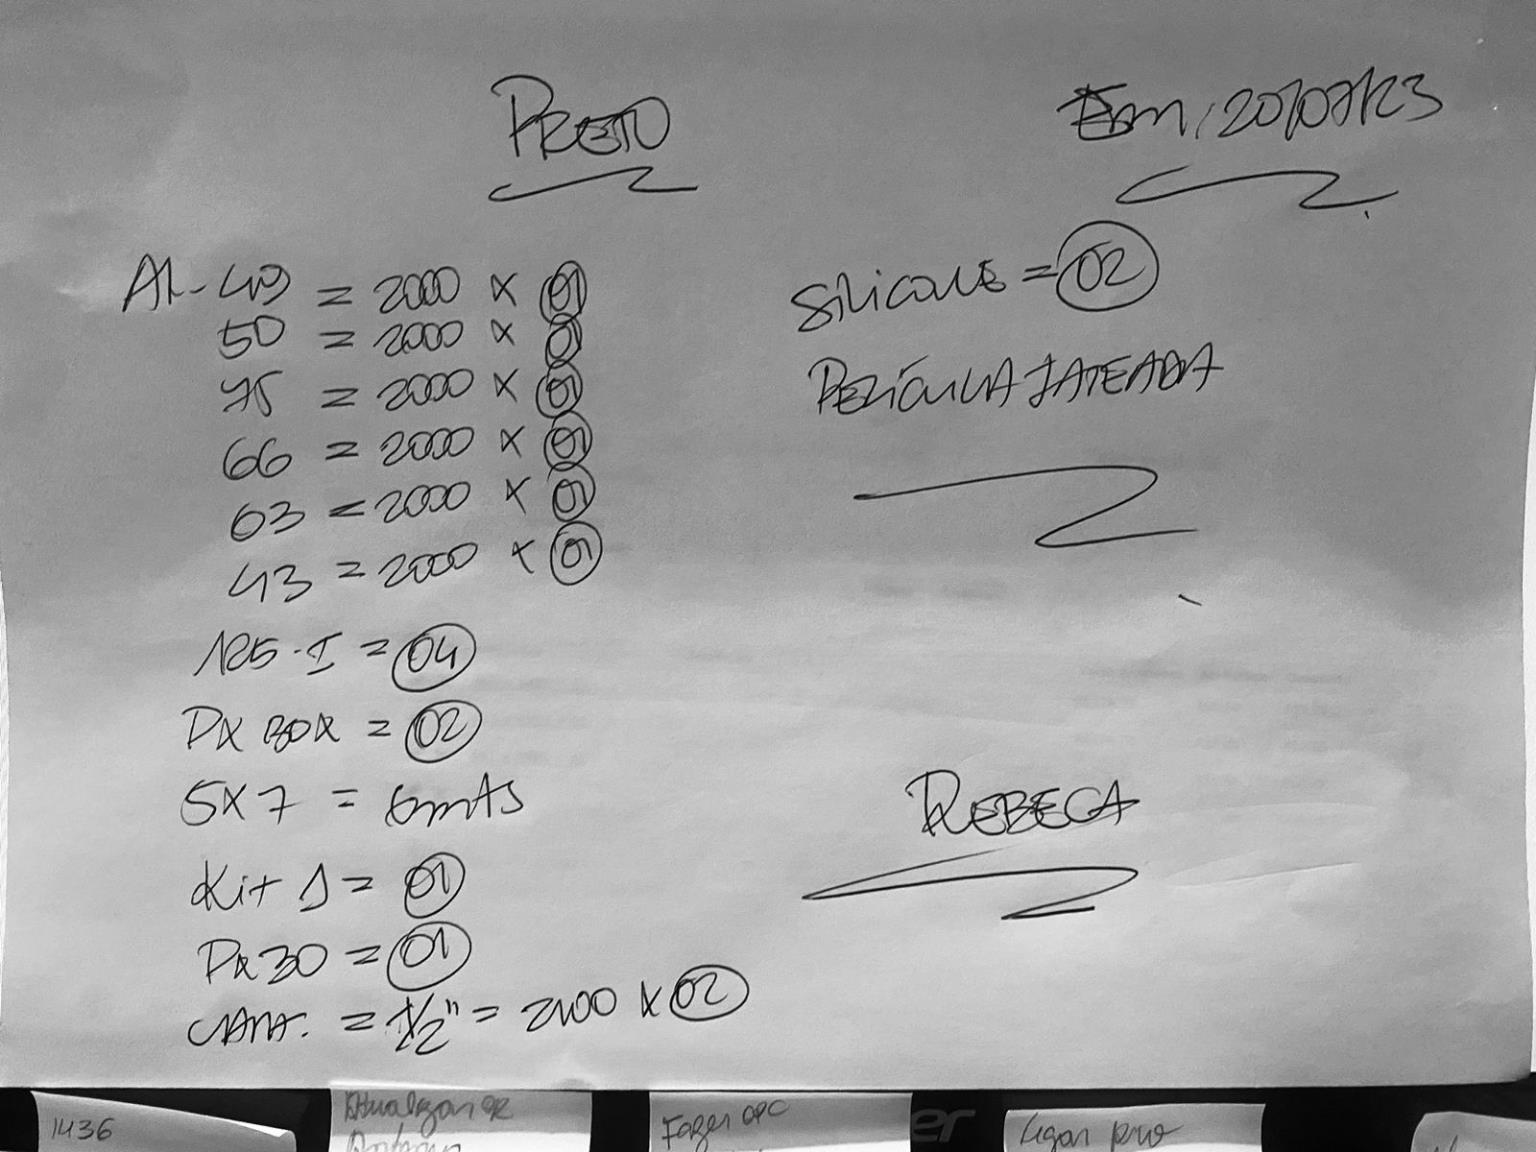 PRETO
Em, 20/07/23
AL-49 = 2000 x 01
50 = 2000 x 01
75 = 2000 x 01
66 = 2000 x 01
63 = 2000 x 01
43 = 2000 x 01
125-I = 04
PX BOX = 02
5x7 = 6mts
Kit 1 = 01
PX30 = 01
CANA. = 1/2" = 2100 x 02
SILICONE = 02
PELÍCULA JATEADA
REBECA
1436
Atualizar
Fazer OPC
er
Ligar pro